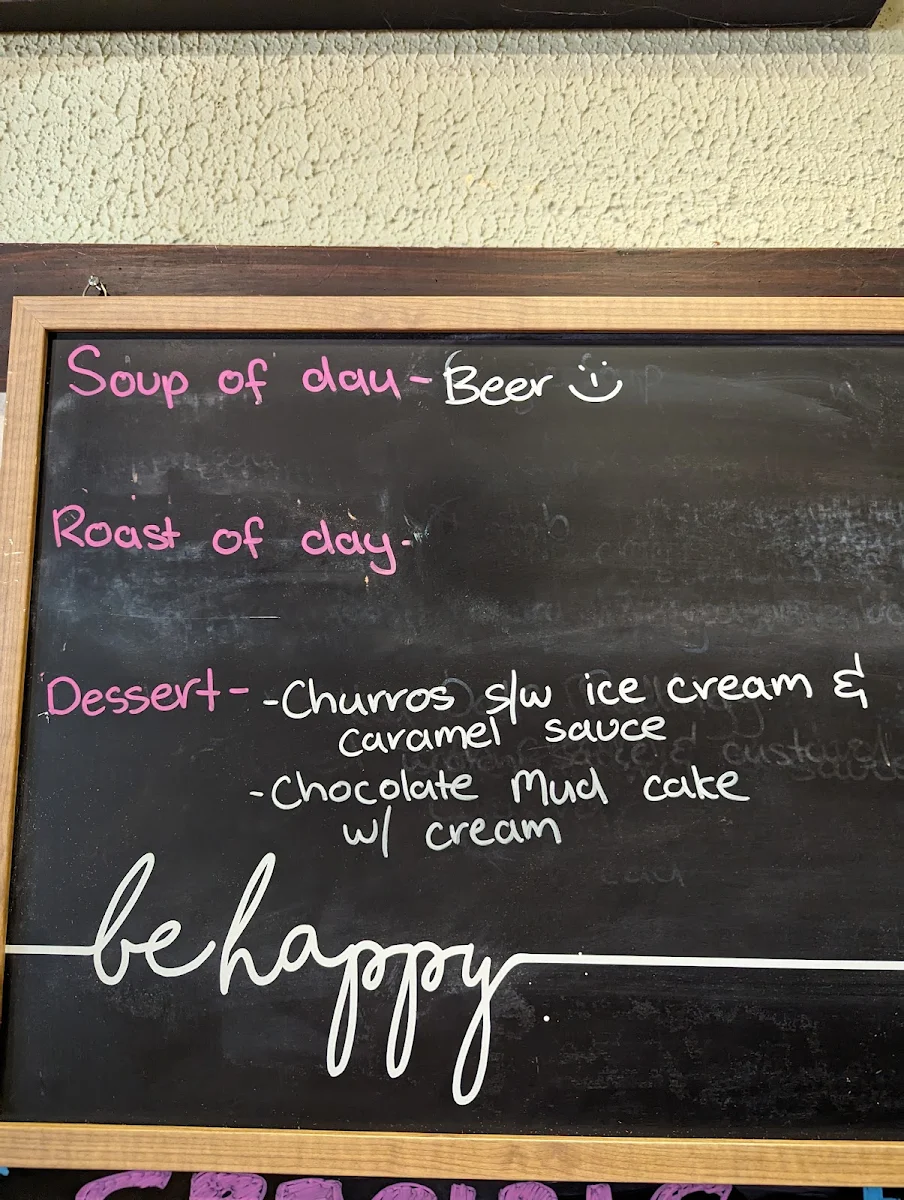 Soup of day - Beer
Roast of day -
Dessert - - Churros s/w ice cream &
caramel sauce
- Chocolate Mud cake
w/ cream
be happy